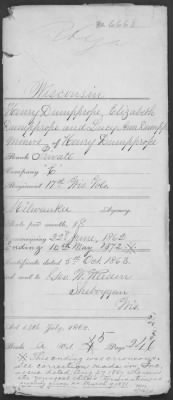 No. 6668
Wisconsin
Henry Dumpprope, Elizabeth
Dumpprope and Lucy Ann Dumpp
Minors of Henry Dumpprope
Rank Private
Company E
Regiment 17th Wis. Vols
Milwaukee Agency
Rate per month, $8
Commencing 22d June, 1862
Ending 16th May 1872 X
Certificate dated 5th Oct 1868
and sent to Geo. W. Weeden
Sheboygan
Wis.
Act 14th July, 1862.
Book A Vol. 5 Page 246
X This ending was erroneous.
See